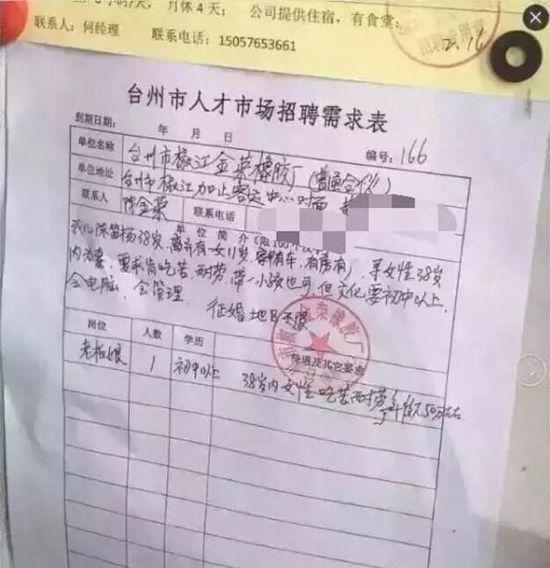 月休4天； 公司提供住宿，有食堂；
联系人：何经理 联系电话：15057653661
台州市人才市场招聘需求表
到期日期： 年 月 日 编号：166
单位名称 台州市椒江金荣橡胶厂（普通合伙）
单位地址 台州市椒江加止客运中心对面
联系人 陈金荣 联系电话
单位简介（限100个汉字）
38岁，离异有一女11岁，家有车，有房，寻女性38岁
内为妻，要求肯吃苦耐劳，带一小孩也可，但文化要初中以上，
会电脑，会管理. 征婚地区不限
岗位 人数 学历 待遇及其它要求
老板娘 1 初中以上 38岁内女性吃苦耐劳年薪50万左右